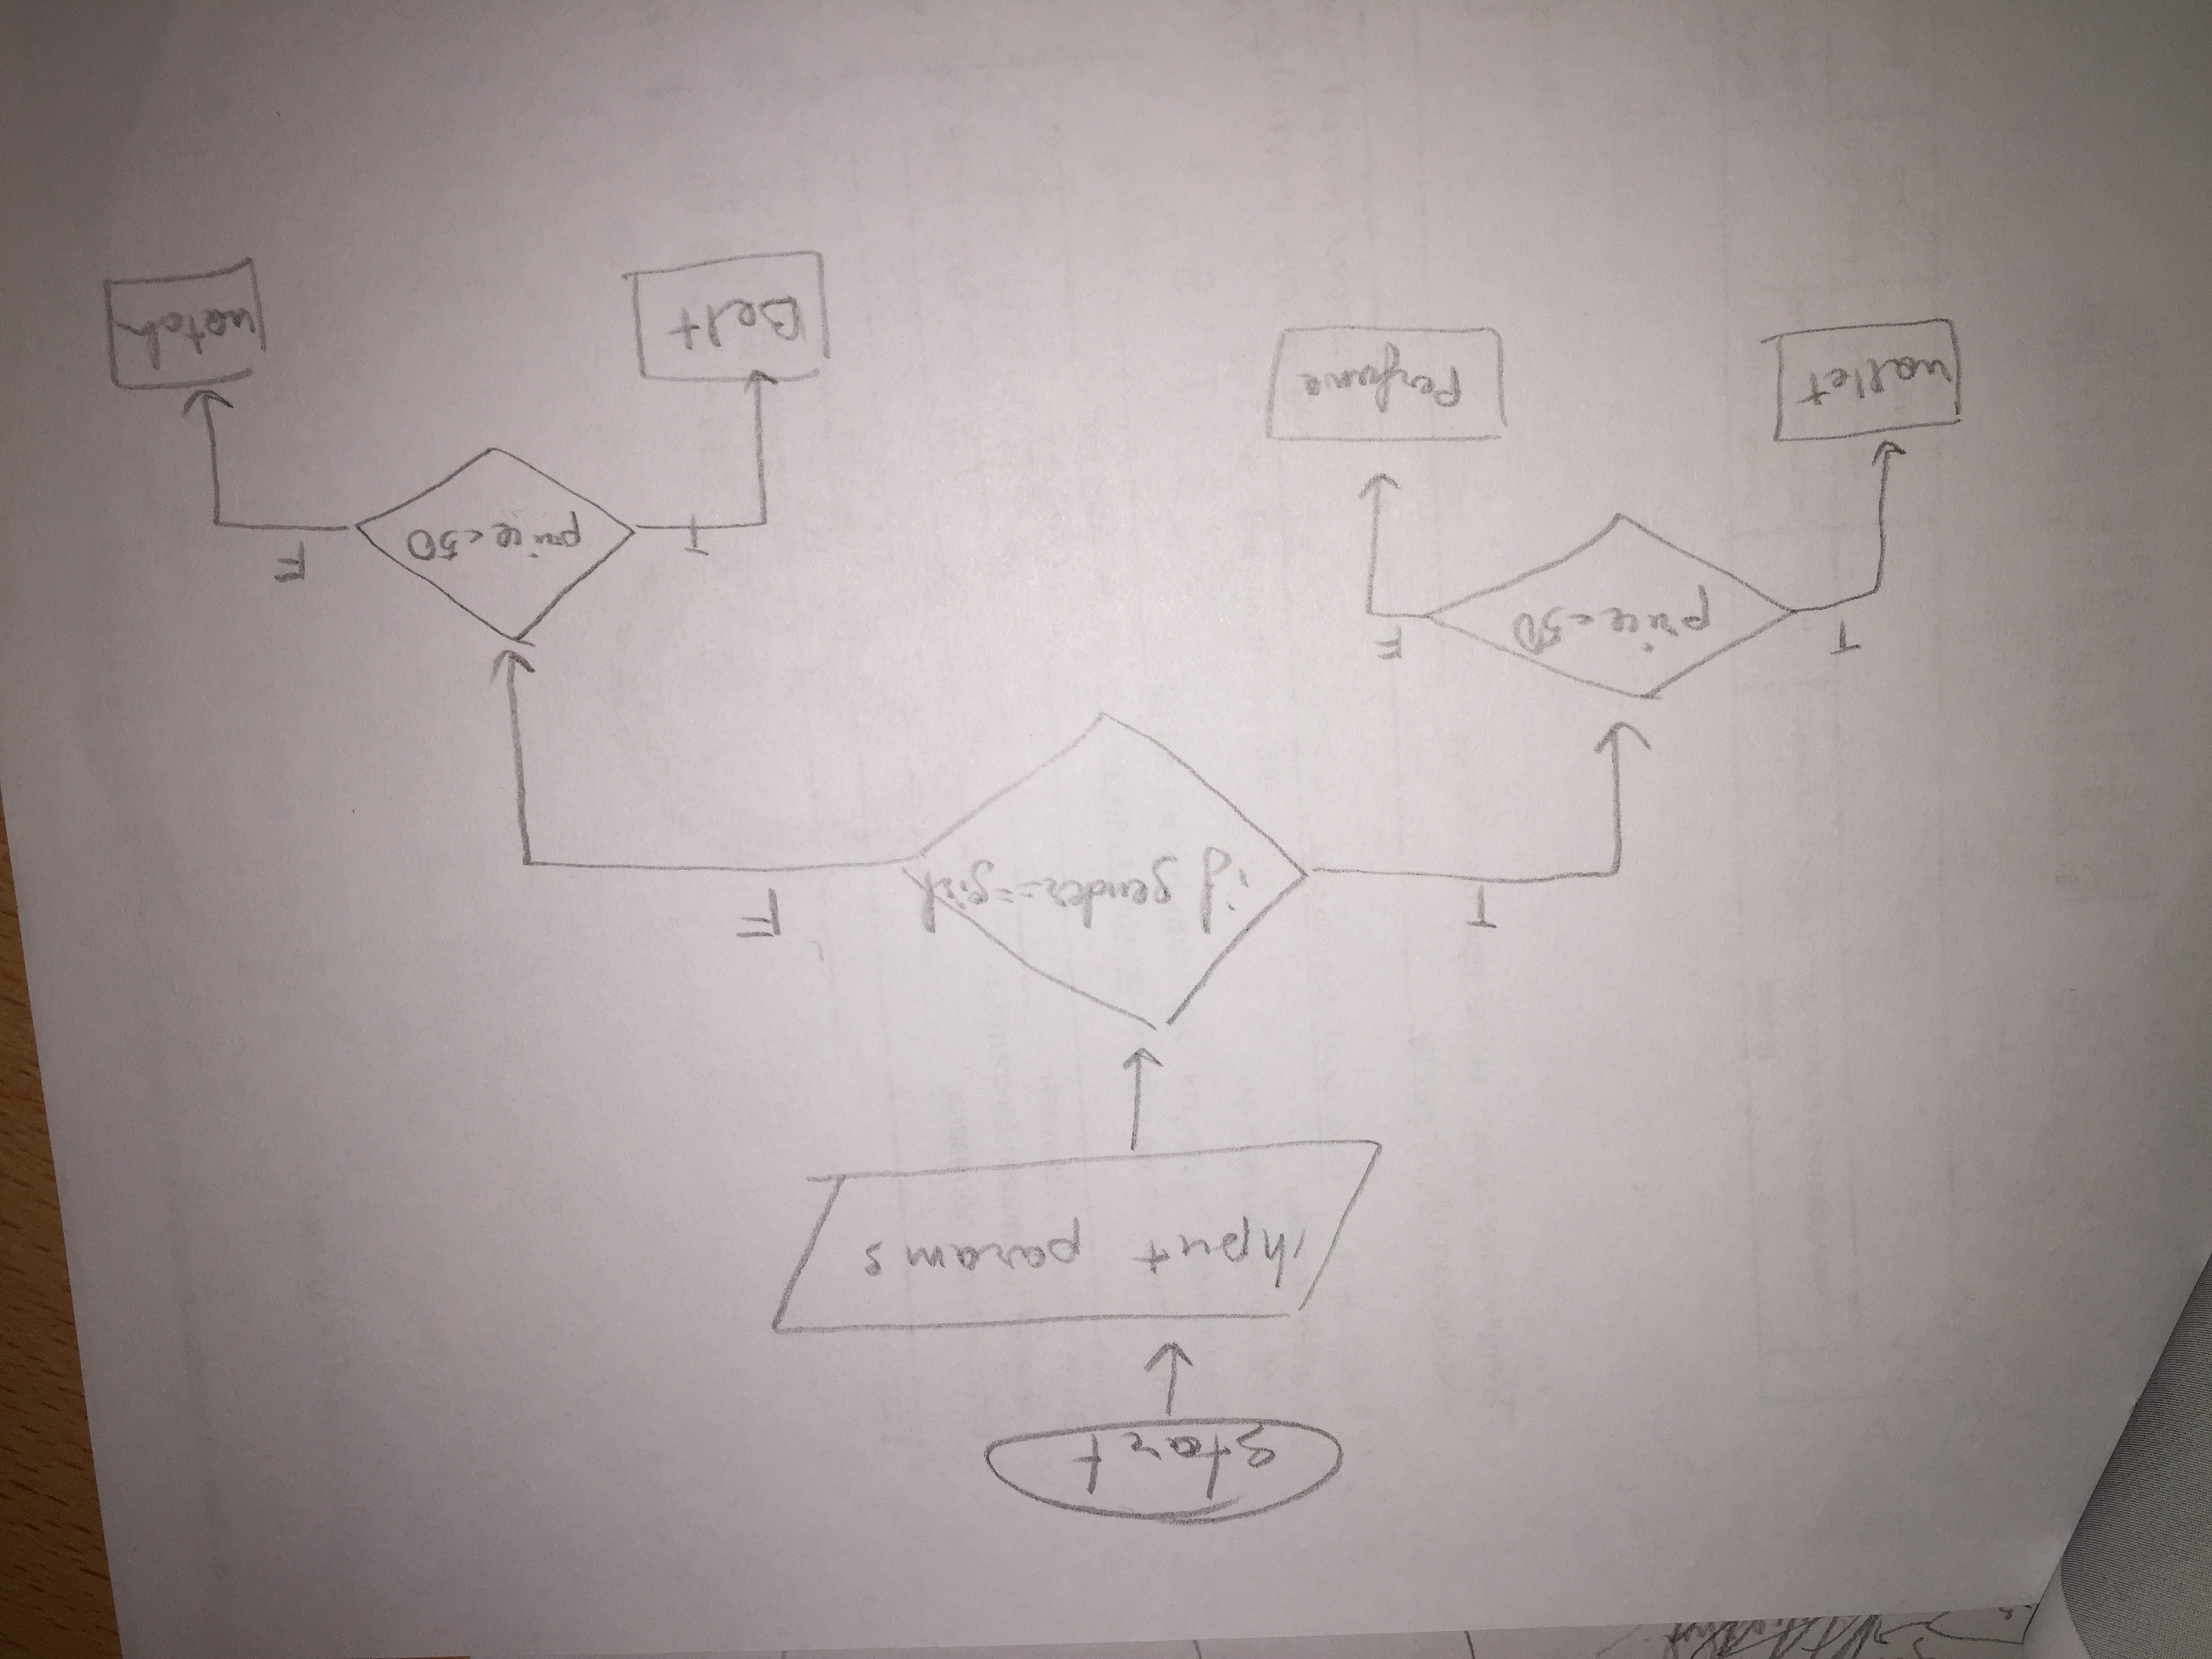 start
input params
if gender==girl
T
F
price<50
T
F
wallet
Perfume
price<50
T
F
Belt
watch